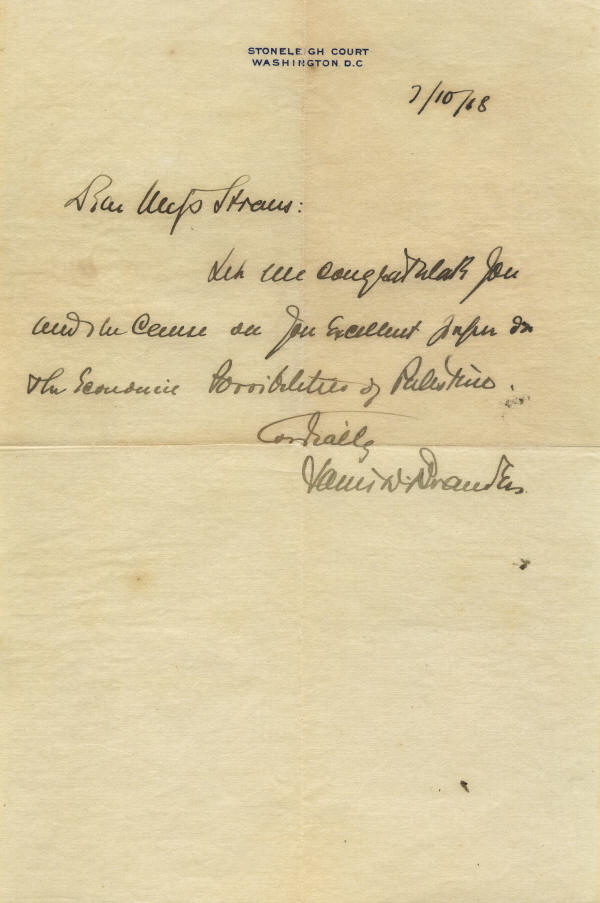 STONELEIGH COURT
WASHINGTON D.C
7/10/18
Dear Miss Straus:
Let me congratulate you
and the Cause on your Excellent paper on
the Economic Possibilities of Palestine.
Cordially
Louis D. Brandeis